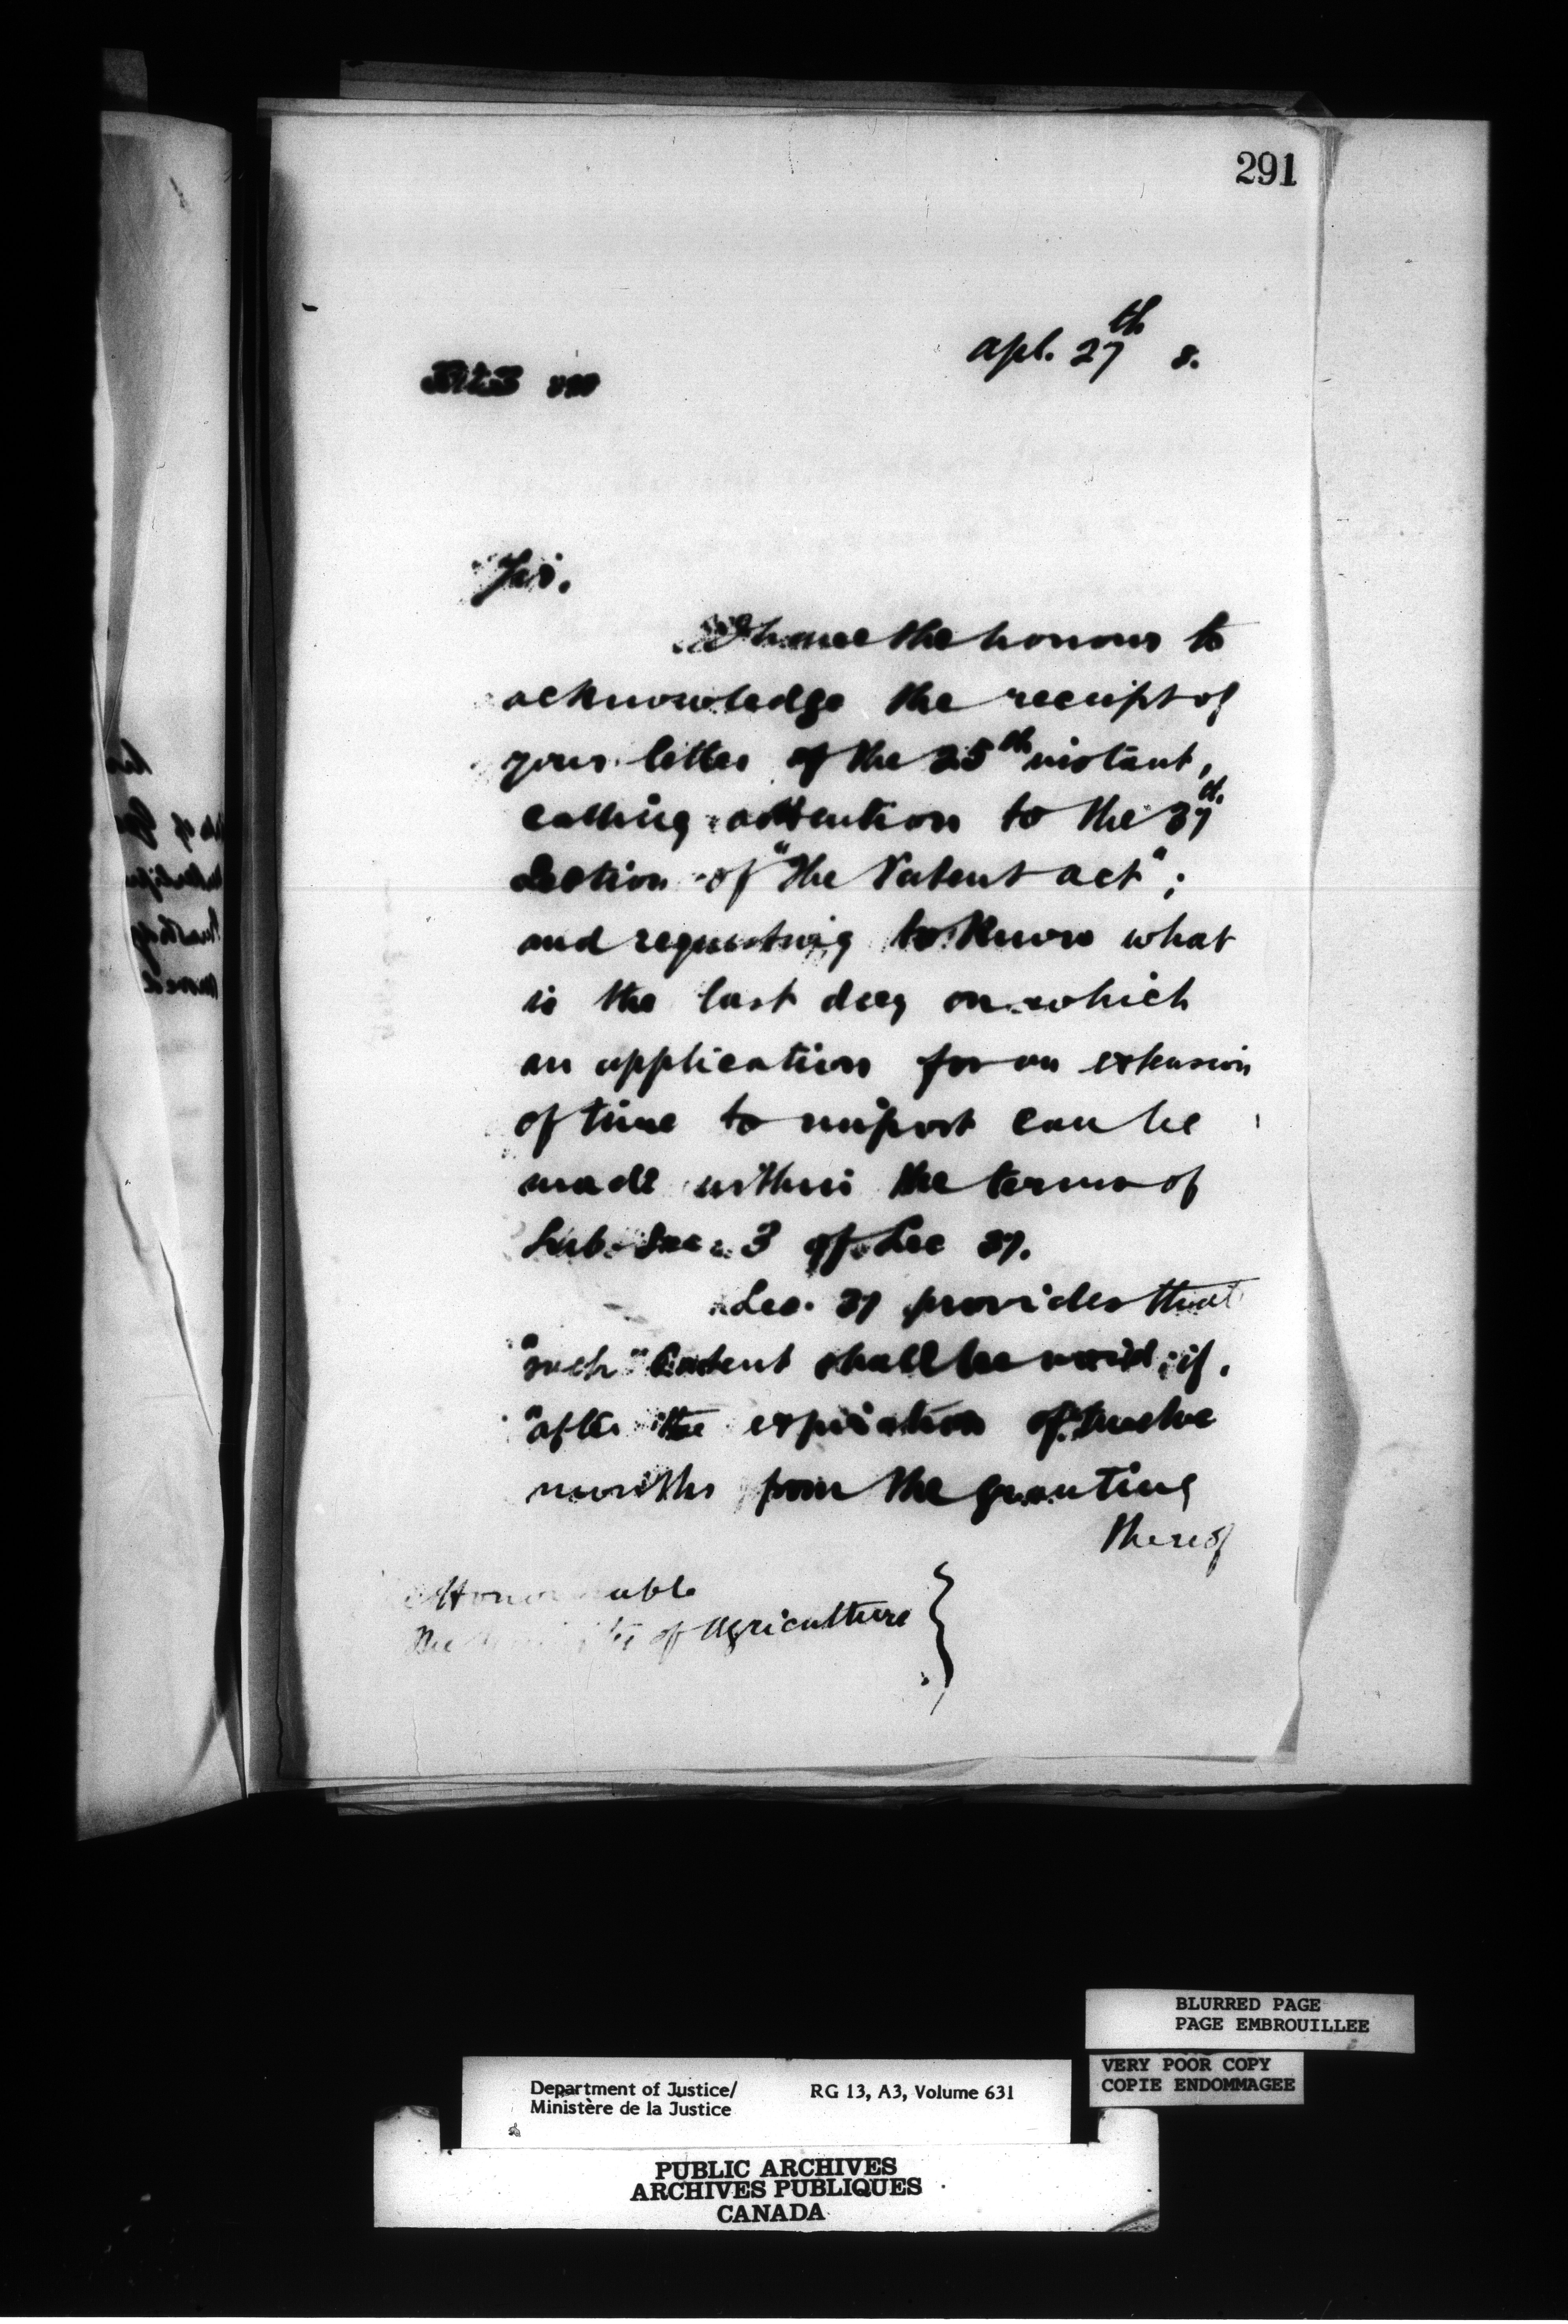 291
Apl. 27th 8.
Sir.
I have the honour to
acknowledge the receipt of
your letter of the 25th instant,
calling attention to the 37th
Section of "The Patent Act";
and requesting to know what
is the last day on which
an application for an extension
of time to import can be
made within the terms of
Sub-Sec. 3 of Sec 37.
Sec. 37 provides that
"such" Patent shall be void; if,
"after the expiration of twelve
months from the granting
thereof
Honourable
The Minister of Agriculture }
BLURRED PAGE
PAGE EMBROUILLEE
VERY POOR COPY
COPIE ENDOMMAGEE
Department of Justice/ RG 13, A3, Volume 631
Ministère de la Justice
PUBLIC ARCHIVES
ARCHIVES PUBLIQUES
CANADA